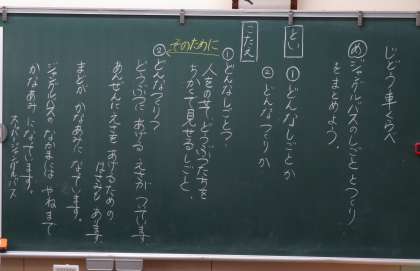 じどう車くらべ
め ジャングルバスのしごととつくりをまとめよう。
とい
① どんなしごとか
② どんなつくりか
こたえ
① どんなしごと?
人をのせて、どうぶつたちを
ちかくで見せるしごと。
そのために
② どんなつくり?
どうぶつに あげる えさが ついています。
あんぜんに えさを あげるための
はさみも あります。
まどが かなあみに なっています。
ジャングルバスの なかまには やねまで
かなあみ になっています。
スーパージャングルバス